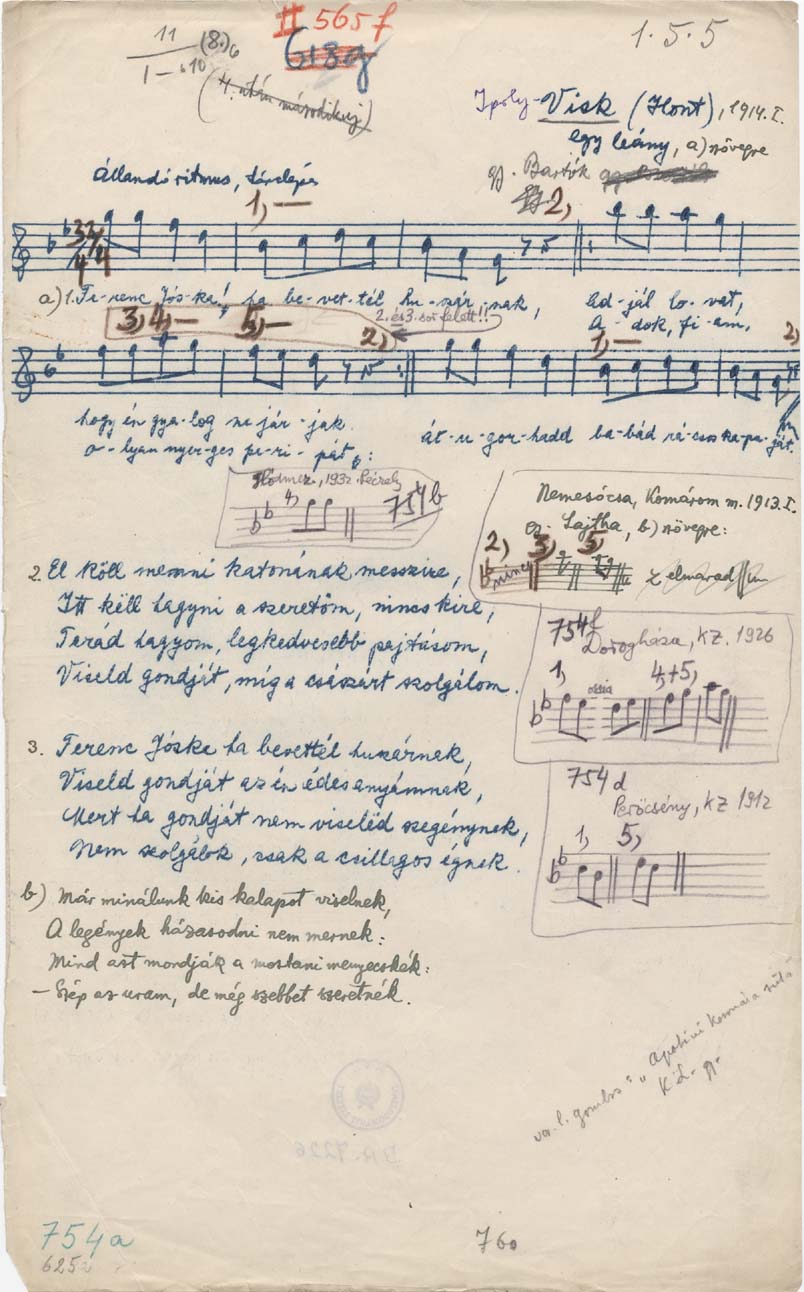 11
I - 10
(8.) 6
II 565 f
618 g
1.5.5
(4. után második új)
Ipoly-Visk (Hont), 1914. I.
egy leány, a) szövegre
gy. Bartók
állandó ritmus, tánclépés
1, — 2,
3 2
4 4
a) 1. Fe-renc Jós-ka! ha be-vet-tél hu-szár-nak, ad-jál lo-vat,
A-dok, fi-am,
3, 4, — 5, — 2. és 3. sor felett!! 2, 1, — 2,
hogy én gya-log ne jár-jak. át-u-gor-hadd ba-bád rá-csos ka-pu-ját.
o-lyan nyer-ges pa-ri-pát,:
Hódmez., 1932. Péczely
4, 754 b
Nemesócsa, Komárom m. 1913. I.
gy. Lajtha, b) szövegre:
2, nincs 3, 5, elmarad
2. El köll menni katonának messzire,
Itt kell hagyni a szeretőm, nincs kire,
Terád hagyom, legkedvesebb pajtásom,
Viseld gondját, míg a császárt szolgálom.
754 f
Dorogháza, KZ. 1926
1, ossia 4,+5,
3. Ferenc Jóska ha bevettél huszárnak,
Viseld gondját az én édesanyámnak,
Mert ha gondját nem viseléd szegénynek,
Nem szolgálok, csak a csillagos égnek.
754 d
Perőcsény, KZ 1912
1, 5,
b) Már minálunk kis kalapot viselnek,
A legények házasodni nem mernek:
Mind azt mondják a mostani menyecskék:
— Szép az uram, de még szebbet szeretnék.
K. L. gy.
754 a
625
760